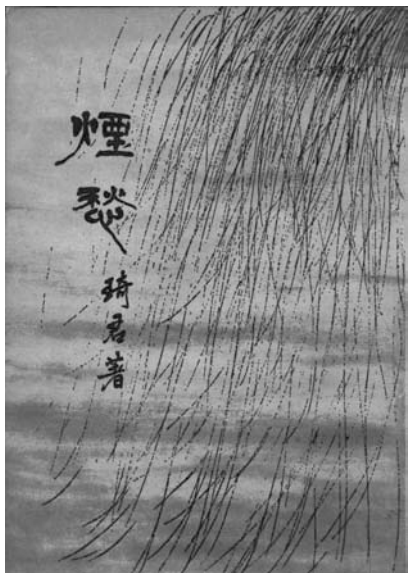 煙愁
琦君著